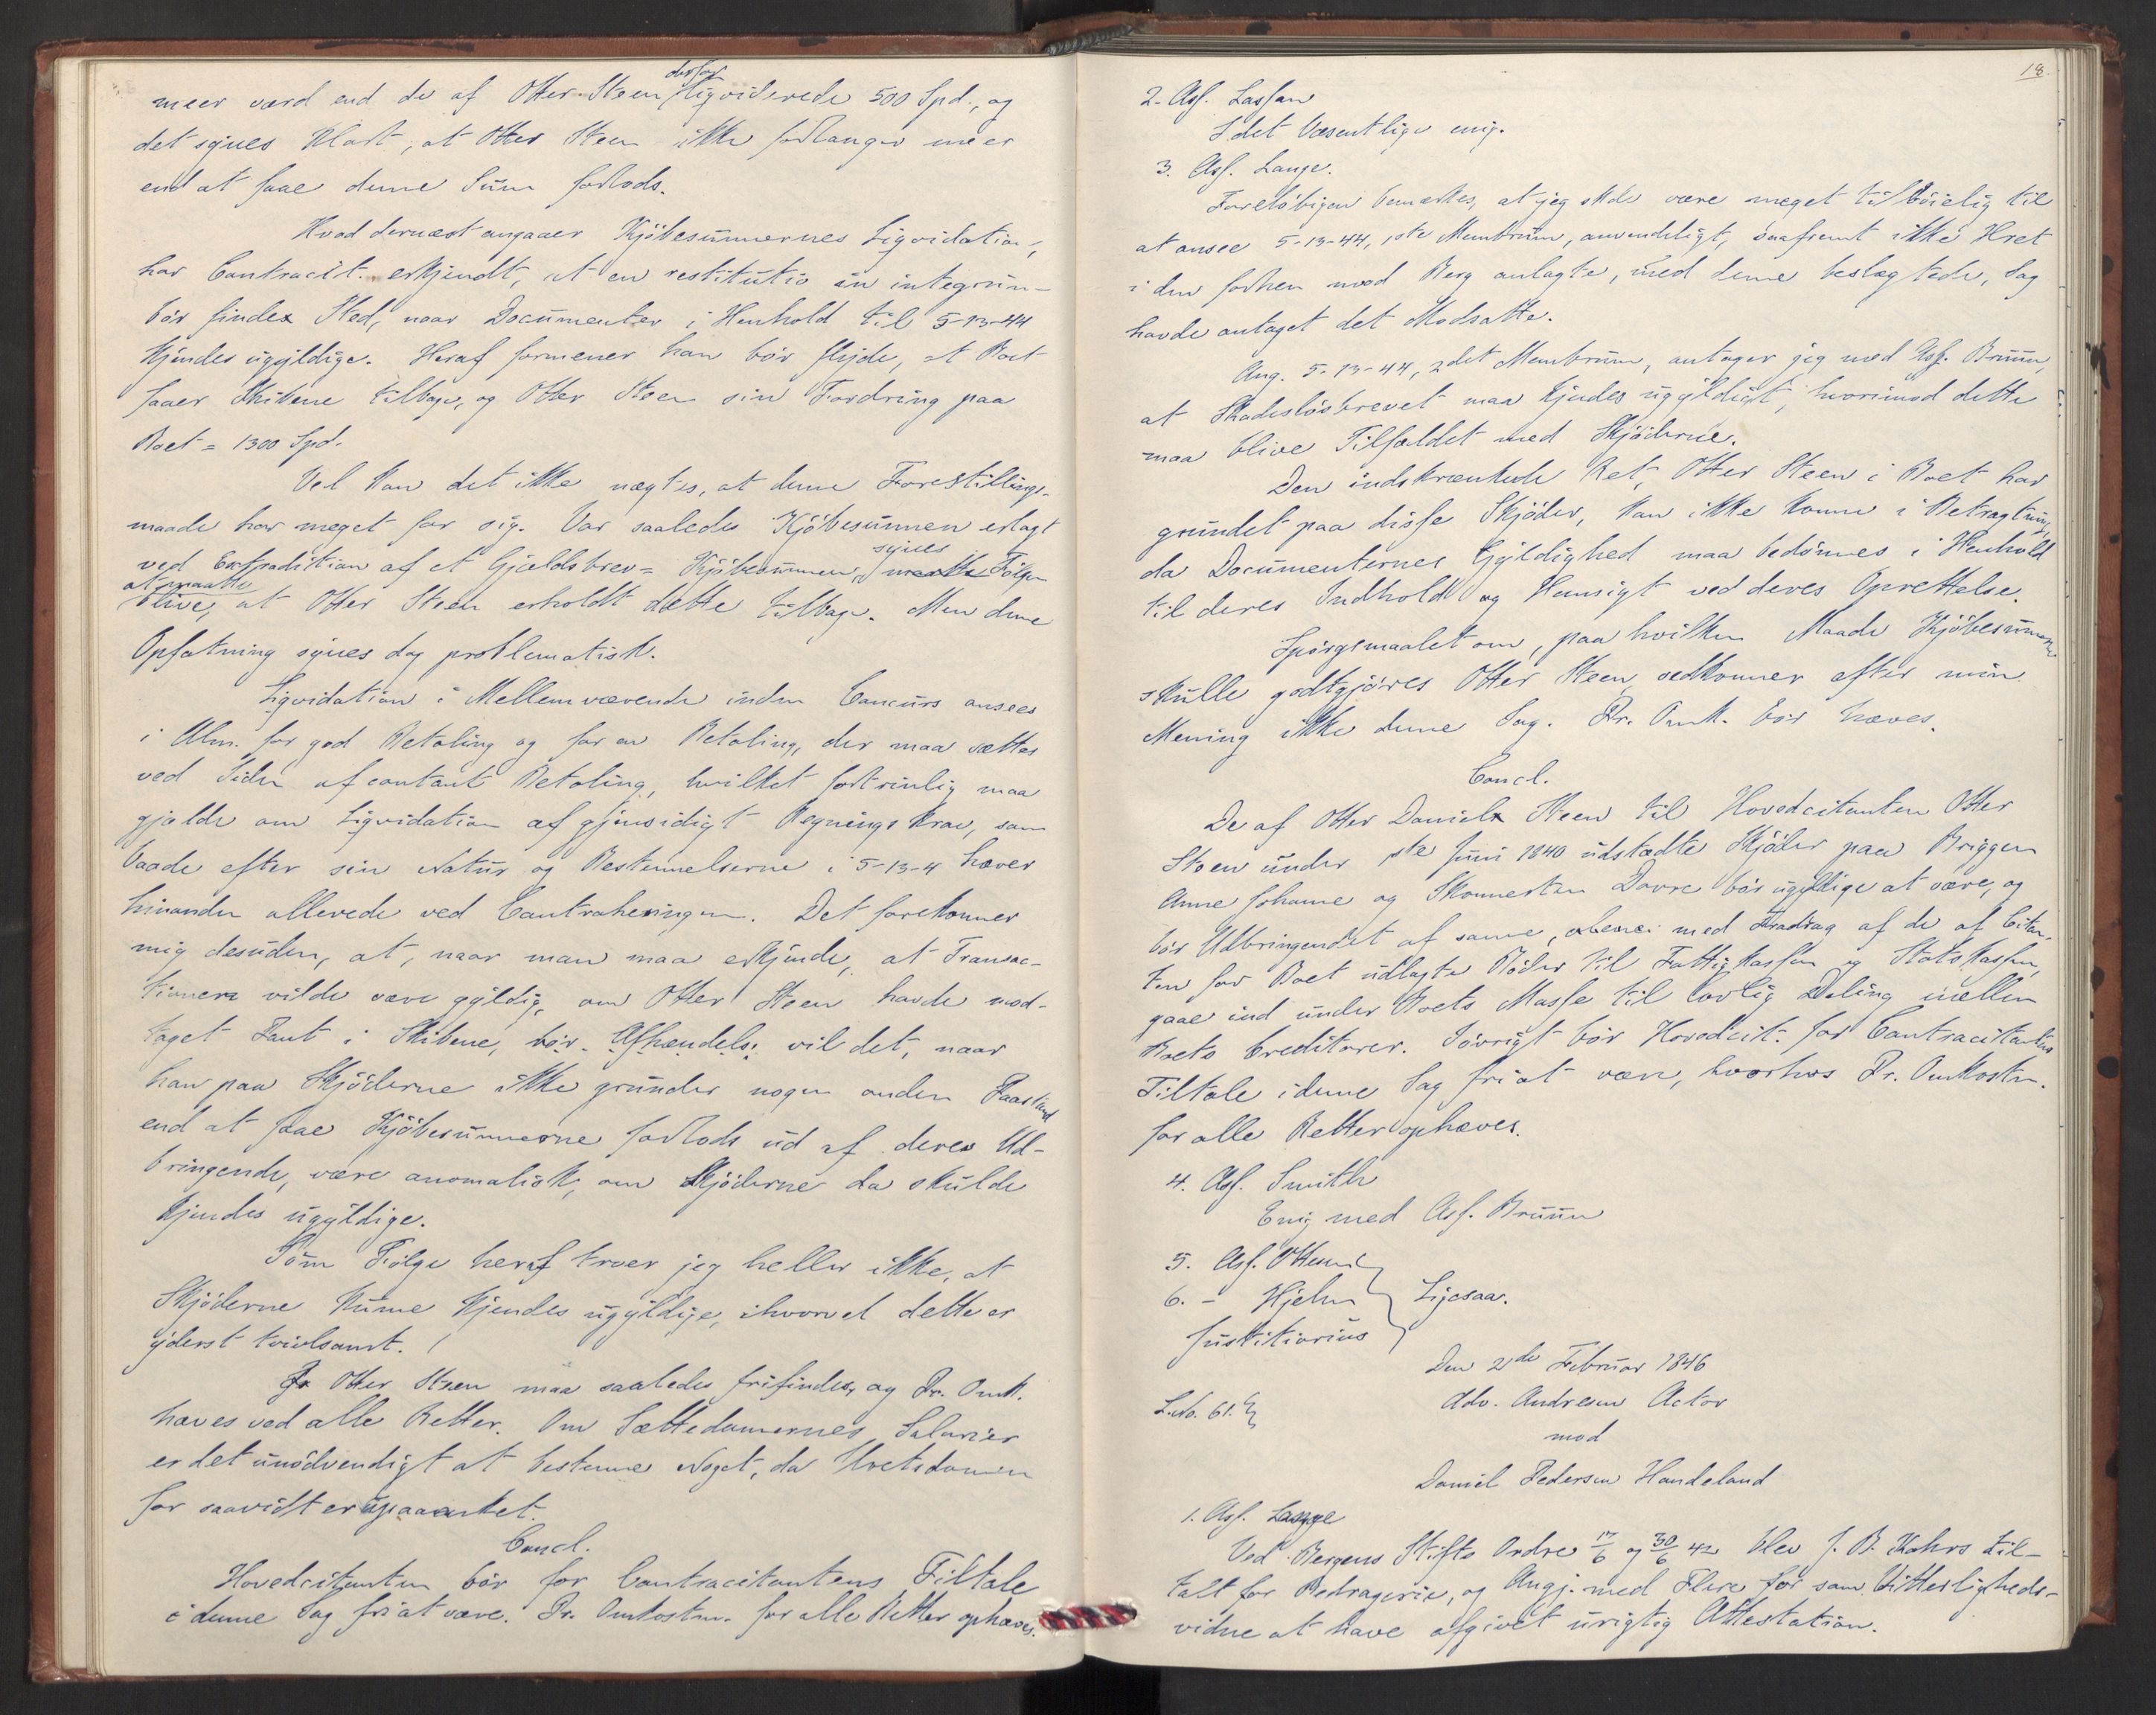 meer værd end de af Otter Steen derfor ligviderede 500 Spd., og
det synes klart, at Otter Steen ikke forlanger meer
end at faae denne Sum forlods.
Hvad dernæst angaaer Kjöbesummernes Ligvidation,
har Contracit. erkjendt, at en restitutio in integrum
bör finde Sted, naar Documenter i Henhold til 5-13-44
kjendes ugyldige. Heraf formener han bör flyde, at Boet
faaer Skibene tilbage, og Otter Steen sin Fordring paa
Boet = 1300 Spd.
Vel kan det ikke nægtes, at denne Forestillings-
maade har meget for sig. Var saaledes Kjöbesummen erlagt
ved Extradition af et Gjældsbrev = Kjöbesummen, synes Fölgen
at maatte blive, at Otter Steen erholdt dette tilbage. Men denne
Opfatning synes dog problematisk.
Ligvidation i Mellemværende inden Concurs ansees
i Alm. for god Betaling og for en Betaling, der maa sættes
ved Siden af contant Betaling, hvilket fortrinlig maa
gjælde om Ligvidation af gjensidigt Regningskrav, som
baade efter sin Natur og Bestemmelserne i 5-13-4 hæver
hinanden allerede ved Contraheringen. Det forekommer
mig desuden, at, naar man maa erkjende, at Transac-
tionen vilde være gyldig, om Otter Steen havde mod-
taget Pant i Skibene, bör Afhændels: vil det, naar
han paa Skjöderne ikke grunder nogen anden Paastand
end at faae Kjöbesummerne forlods ud af deres Ud-
bringende, være anomalisk, om Skjöderne da skulde
kjendes ugyldige.
Som Fölge heraf troer jeg heller ikke, at
Skjöderne kunne kjendes ugyldige, ihvorvel dette er
yderst tvivlsomt.
Otter Steen maa saaledes frifindes, og Pr. Omk.
hæves ved alle Retter. Om Sættedommernes Salarier
er det unödvendigt at bestemme Noget, da Hretsdommen
for saavidt er upaaanket.
Concl.
Hovedcitanten bör for Contracitantens Tiltale
i denne Sag fri at være. Pr. Omkostn. for alle Retter ophæves.
18.
2. Ass. Lasson
I det Væsentlige enig.
3. Ass. Lange.
Foreløbigen bemærkes, at jeg skde være meget tilböielig til
at ansee 5-13-44, 1ste Membrum, anvendeligt, saafremt ikke Hret
i den forhen mod Berg anlagte, med denne beslægtede, Sag
havde antaget det Modsatte.
Ang. 5-13-44, 2det Membrum, antager jeg med Ass. Bruun,
at Skadeslösbrevet maa kjendes ugyldigt, hvorimod dette
maa blive Tilfældet med Skjöderne.
Den indskrænkede Ret, Otter Steen i Boet har
grundet paa disse Skjöder, kan ikke komme i Betragtning,
da Documenternes Gyldighed maa bedömmes i Henhold
til deres Indhold og Hensigt ved deres Oprettelse.
Spörgsmaalet om, paa hvilken Maade Kjöbesummerne
skulle godtgjöres Otter Steen, vedkommer efter min
Mening ikke denne Sag. Pr. Omk. bör hæves.
Concl.
De af Otter Daniels Steen til Hovedcitanten Otter
Steen under 1ste Juni 1840 udstædte Skjöder paa Briggen
Anne Johanne og Skonnerten Dovre bör ugyldige at være, og
bör Udbringendet af samme, med Fradrag af de af Citan-
ten for Boet udlagte Böder til Fattigkassen og Statskassen,
gaae ind under Boets Masse til lovlig Deling mellem
Boets Creditorer. Iövrigt bör Hovedcit. for Contracitantens
Tiltale i denne Sag fri at være, hvorhos Pr. Omkostn.
for alle Retter ophæves.
4. Ass. Smith
Enig med Ass. Bruun
5. Ass. Ottesen
6. - Hjelm } Ligesaa.
Justitiarius
Den 2de Februar 1846
L. No. 61. Adv. Andresen Actor
mod
Daniel Pedersen Handeland
1. Ass. Lange
Ved Bergens Stifts Ordre 17/6 og 30/6 42 blev J. B. Kohrs til-
talt for Bedragerie, og Angj. med Flere for som Vitterligheds-
vidne at have afgivet urigtig Attestation.